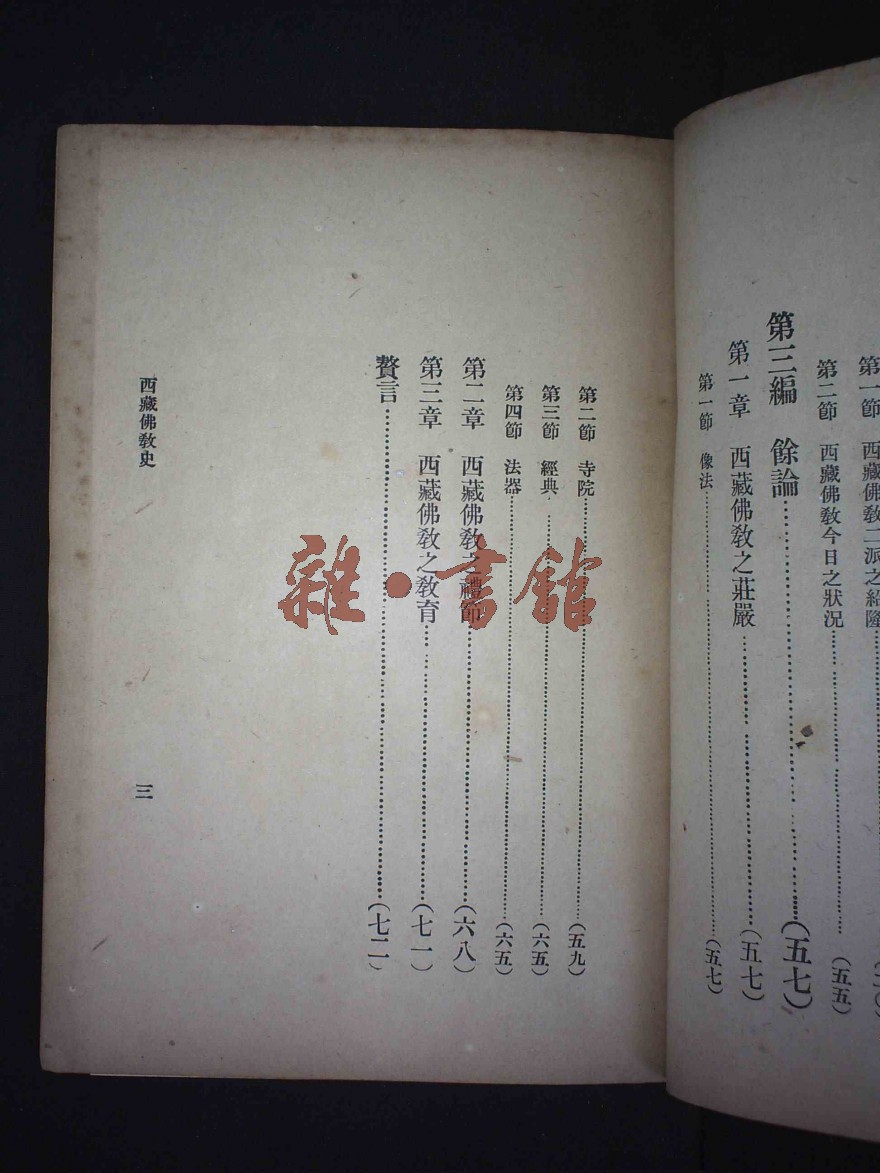 第一節　西藏佛敎二派之紹隆
第二節　西藏佛敎今日之狀況……(五五)
第三編　餘論……(五七)
第一章　西藏佛敎之莊嚴……(五七)
第一節　像法……(五七)
第二節　寺院……(五九)
第三節　經典……(六五)
第四節　法器……(六五)
第二章　西藏佛敎之禮節……(六八)
第三章　西藏佛敎之敎育……(七一)
贅言……(七二)
西藏佛敎史
三
雜·書館